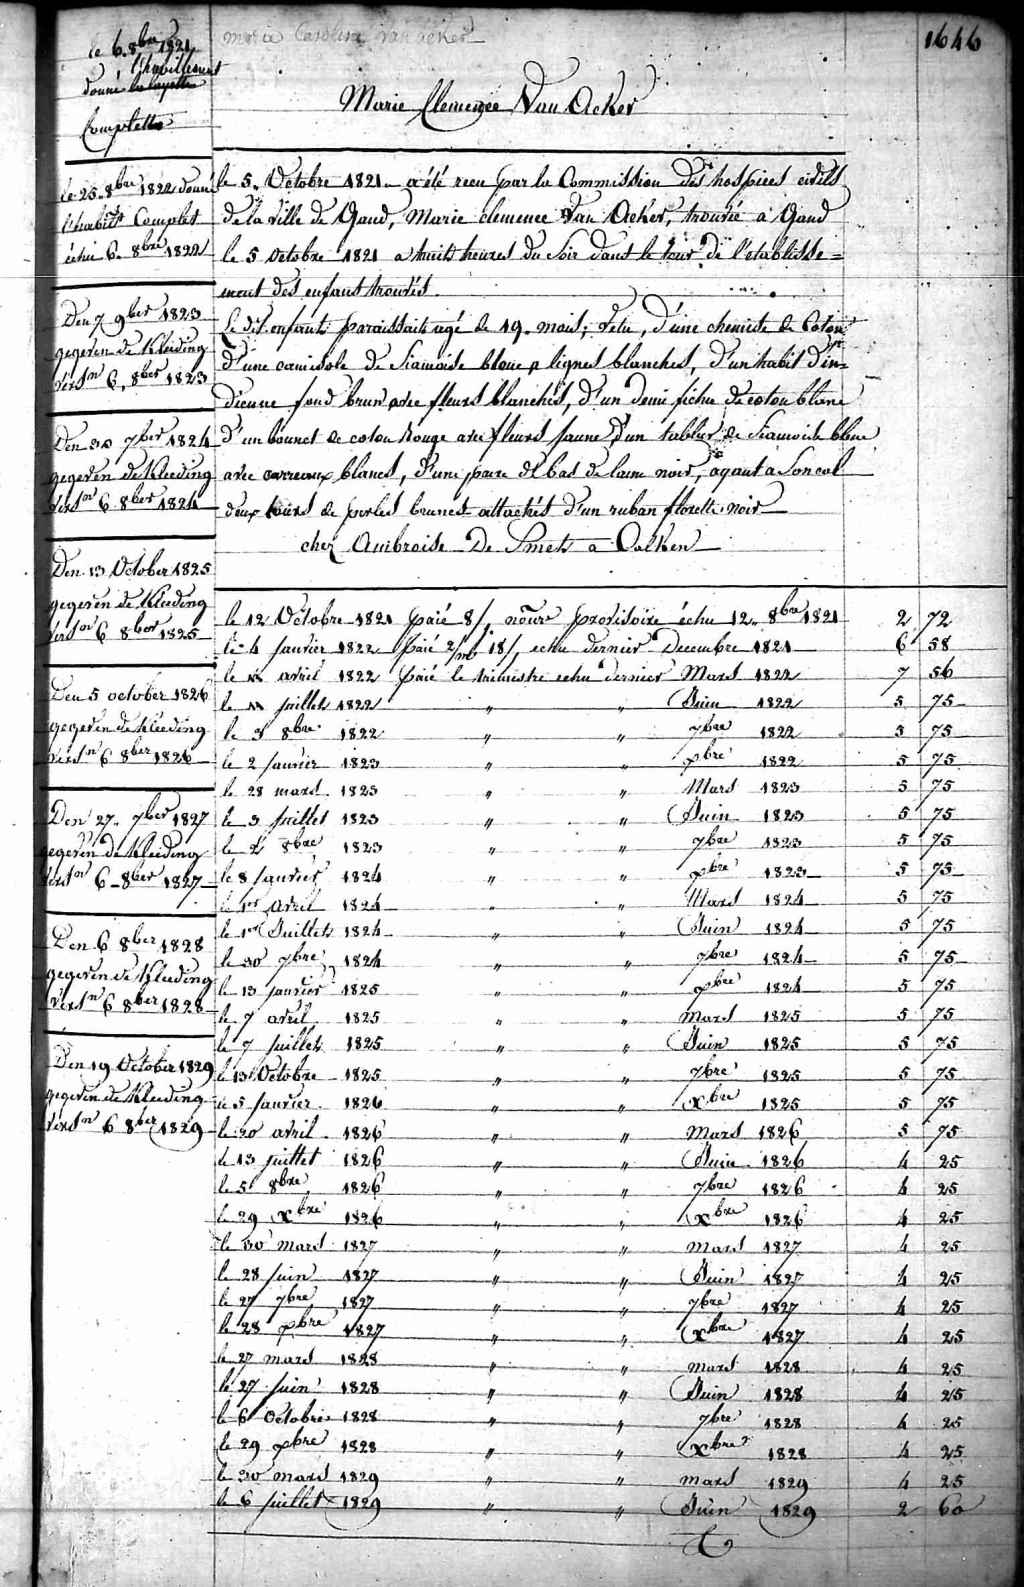 1646
Maria Carolina Van Acker
Marie Clemence Van Acker
le 6. 8bre 1821
donné la layette
Complette
le 25. 8bre 1822 donné
l'habit Complet
échu 6. 8bre 1822
Den 7 9ber 1823
gegeven de Kleeding
versn 6, 8ber 1823
Den 30 7ber 1824
gegeven de Kleeding
versn 6 8ber 1824
Den 13 October 1825
gegeven de Kleeding
versn 6 8ber 1825
Den 5 october 1826
gegeven de Kleeding
versn 6 8ber 1826
Den 27. 7ber 1827
gegeven de Kleeding
versn 6 8ber 1827
Den 6 8ber 1828
gegeven de Kleeding
versn 6 8ber 1828
Den 19 October 1829
gegeven de Kleeding
versn 6 8ber 1829
le 5. Octobre 1821 a été recu par la Commission des hospices civils
de la ville de Gand, Marie clemence Van Acker, trouvée à Gand
le 5 Octobre 1821 a huit heures du Soir dans le tour de l'etablisse=
ment des enfans trouvés.
Le dit enfant paraissait agé de 19. mois, vetu, d'une chemise de Coton
d'une camisole de Siamoise bloue a lignes blanches, d'un habit d'in=
dienne fond brun avec fleurs blanches, d'un demi fichu de coton blanc
d'un bonnet de coton Rouge avec fleurs jaune, d'un tablier de Siamoise bleue
avec carreaux blancs, d'une paire de bas de laine noir, ayant a Son col
deux tours de perles brunes attachés d'un ruban florette noir
chez Ambroise De Smet a Calken
le 12 Octobre 1821 payé 8/, nourre provisoire échu 12. 8bre 1821 2 72
le 4 janvier 1822 payé 18/, echu dernier Decembre 1821 6 58
le avril 1822 payé le trimestre echu dernier Mars 1822 7 56
le juillet 1822 " " Juin 1822 5 75
le 3 8bre 1822 " " 7bre 1822 5 75
le 2 janvier 1823 " " xbre 1822 5 75
le 28 mars 1823 " " Mars 1823 5 75
le 3 juillet 1823 " " Juin 1823 5 75
le 2 8bre 1823 " " 7bre 1823 5 75
le 8 janvier 1824 " " xbre 1823 5 75
le 1er avril 1824 " " Mars 1824 5 75
le 1er Juillet 1824 " " Juin 1824 5 75
le 30 7bre 1824 " " 7bre 1824 5 75
le 13 janvier 1825 " " xbre 1824 5 75
le 7 avril 1825 " " Mars 1825 5 75
le 7 juillet 1825 " " Juin 1825 5 75
le 13 Octobre 1825 " " 7bre 1825 5 75
le 5 janvier 1826 " " xbre 1825 5 75
le 20 avril 1826 " " Mars 1826 5 75
le 13 juillet 1826 " " Juin 1826 4 25
le 5 8bre 1826 " " 7bre 1826 4 25
le 29 xbre 1826 " " xbre 1826 4 25
le 30 mars 1827 " " mars 1827 4 25
le 28 juin 1827 " " Juin 1827 4 25
le 27 7bre 1827 " " 7bre 1827 4 25
le 28 xbre 1827 " " xbre 1827 4 25
le 27 mars 1828 " " mars 1828 4 25
le 27 juin 1828 " " Juin 1828 4 25
le 6 Octobre 1828 " " 7bre 1828 4 25
le 29 xbre 1828 " " xbre 1828 4 25
le 30 mars 1829 " " mars 1829 4 25
le 6 juillet 1829 " " Juin 1829 2 60